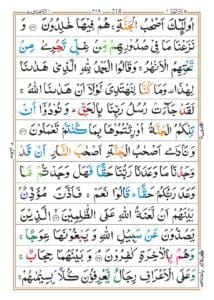 اُولٰٓئِكَ اَصْحٰبُ الْجَنَّةِ ۚ هُمْ فِيْهَا خٰلِدُوْنَ
وَنَزَعْنَا مَا فِيْ صُدُوْرِهِمْ مِّنْ غِلٍّ تَجْرِيْ مِنْ
تَحْتِهِمُ الْاَنْهٰرُ ۚ وَقَالُوا الْحَمْدُ لِلّٰهِ الَّذِيْ هَدٰىنَا
لِهٰذَا وَمَا كُنَّا لِنَهْتَدِيَ لَوْلَاۤ اَنْ هَدٰىنَا اللّٰهُ ۚ
لَقَدْ جَآءَتْ رُسُلُ رَبِّنَا بِالْحَقِّ ؕ وَنُوْدُوْۤا اَنْ
تِلْكُمُ الْجَنَّةُ اُوْرِثْتُمُوْهَا بِمَا كُنْتُمْ تَعْمَلُوْنَ
وَنَادٰۤى اَصْحٰبُ الْجَنَّةِ اَصْحٰبَ النَّارِ اَنْ قَدْ
وَجَدْنَا مَا وَعَدَنَا رَبُّنَا حَقًّا فَهَلْ وَجَدْتُّمْ مَّا
وَعَدَ رَبُّكُمْ حَقًّا ؕ قَالُوْا نَعَمْ ۚ فَاَذَّنَ مُؤَذِّنٌۢ
بَيْنَهُمْ اَنْ لَّعْنَةُ اللّٰهِ عَلَى الظّٰلِمِيْنَ الَّذِيْنَ
يَصُدُّوْنَ عَنْ سَبِيْلِ اللّٰهِ وَيَبْغُوْنَهَا عِوَجًا ۚ
وَهُمْ بِالْاٰخِرَةِ كٰفِرُوْنَ وَبَيْنَهُمَا حِجَابٌ ۚ
وَعَلَى الْاَعْرَافِ رِجَالٌ يَّعْرِفُوْنَ كُلًّاۢ بِسِيْمٰىهُمْ ۚ